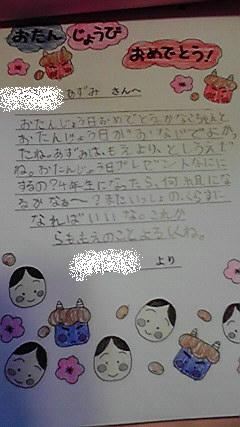 おたんじょうび
おめでとう!
あずみ さんへ
おたんじょう日おめでとう。かなちゃんと
おたんじょう日がおなじでよかっ
たね。あずみは、もえより、としうえだ
ね。おたんじょう日プレゼントなにに
するの?4年生になったら、何組にな
るかなぁ〜?またいっしょのくらすに
なればいいな。これか
らももえのことよろしくね。
より